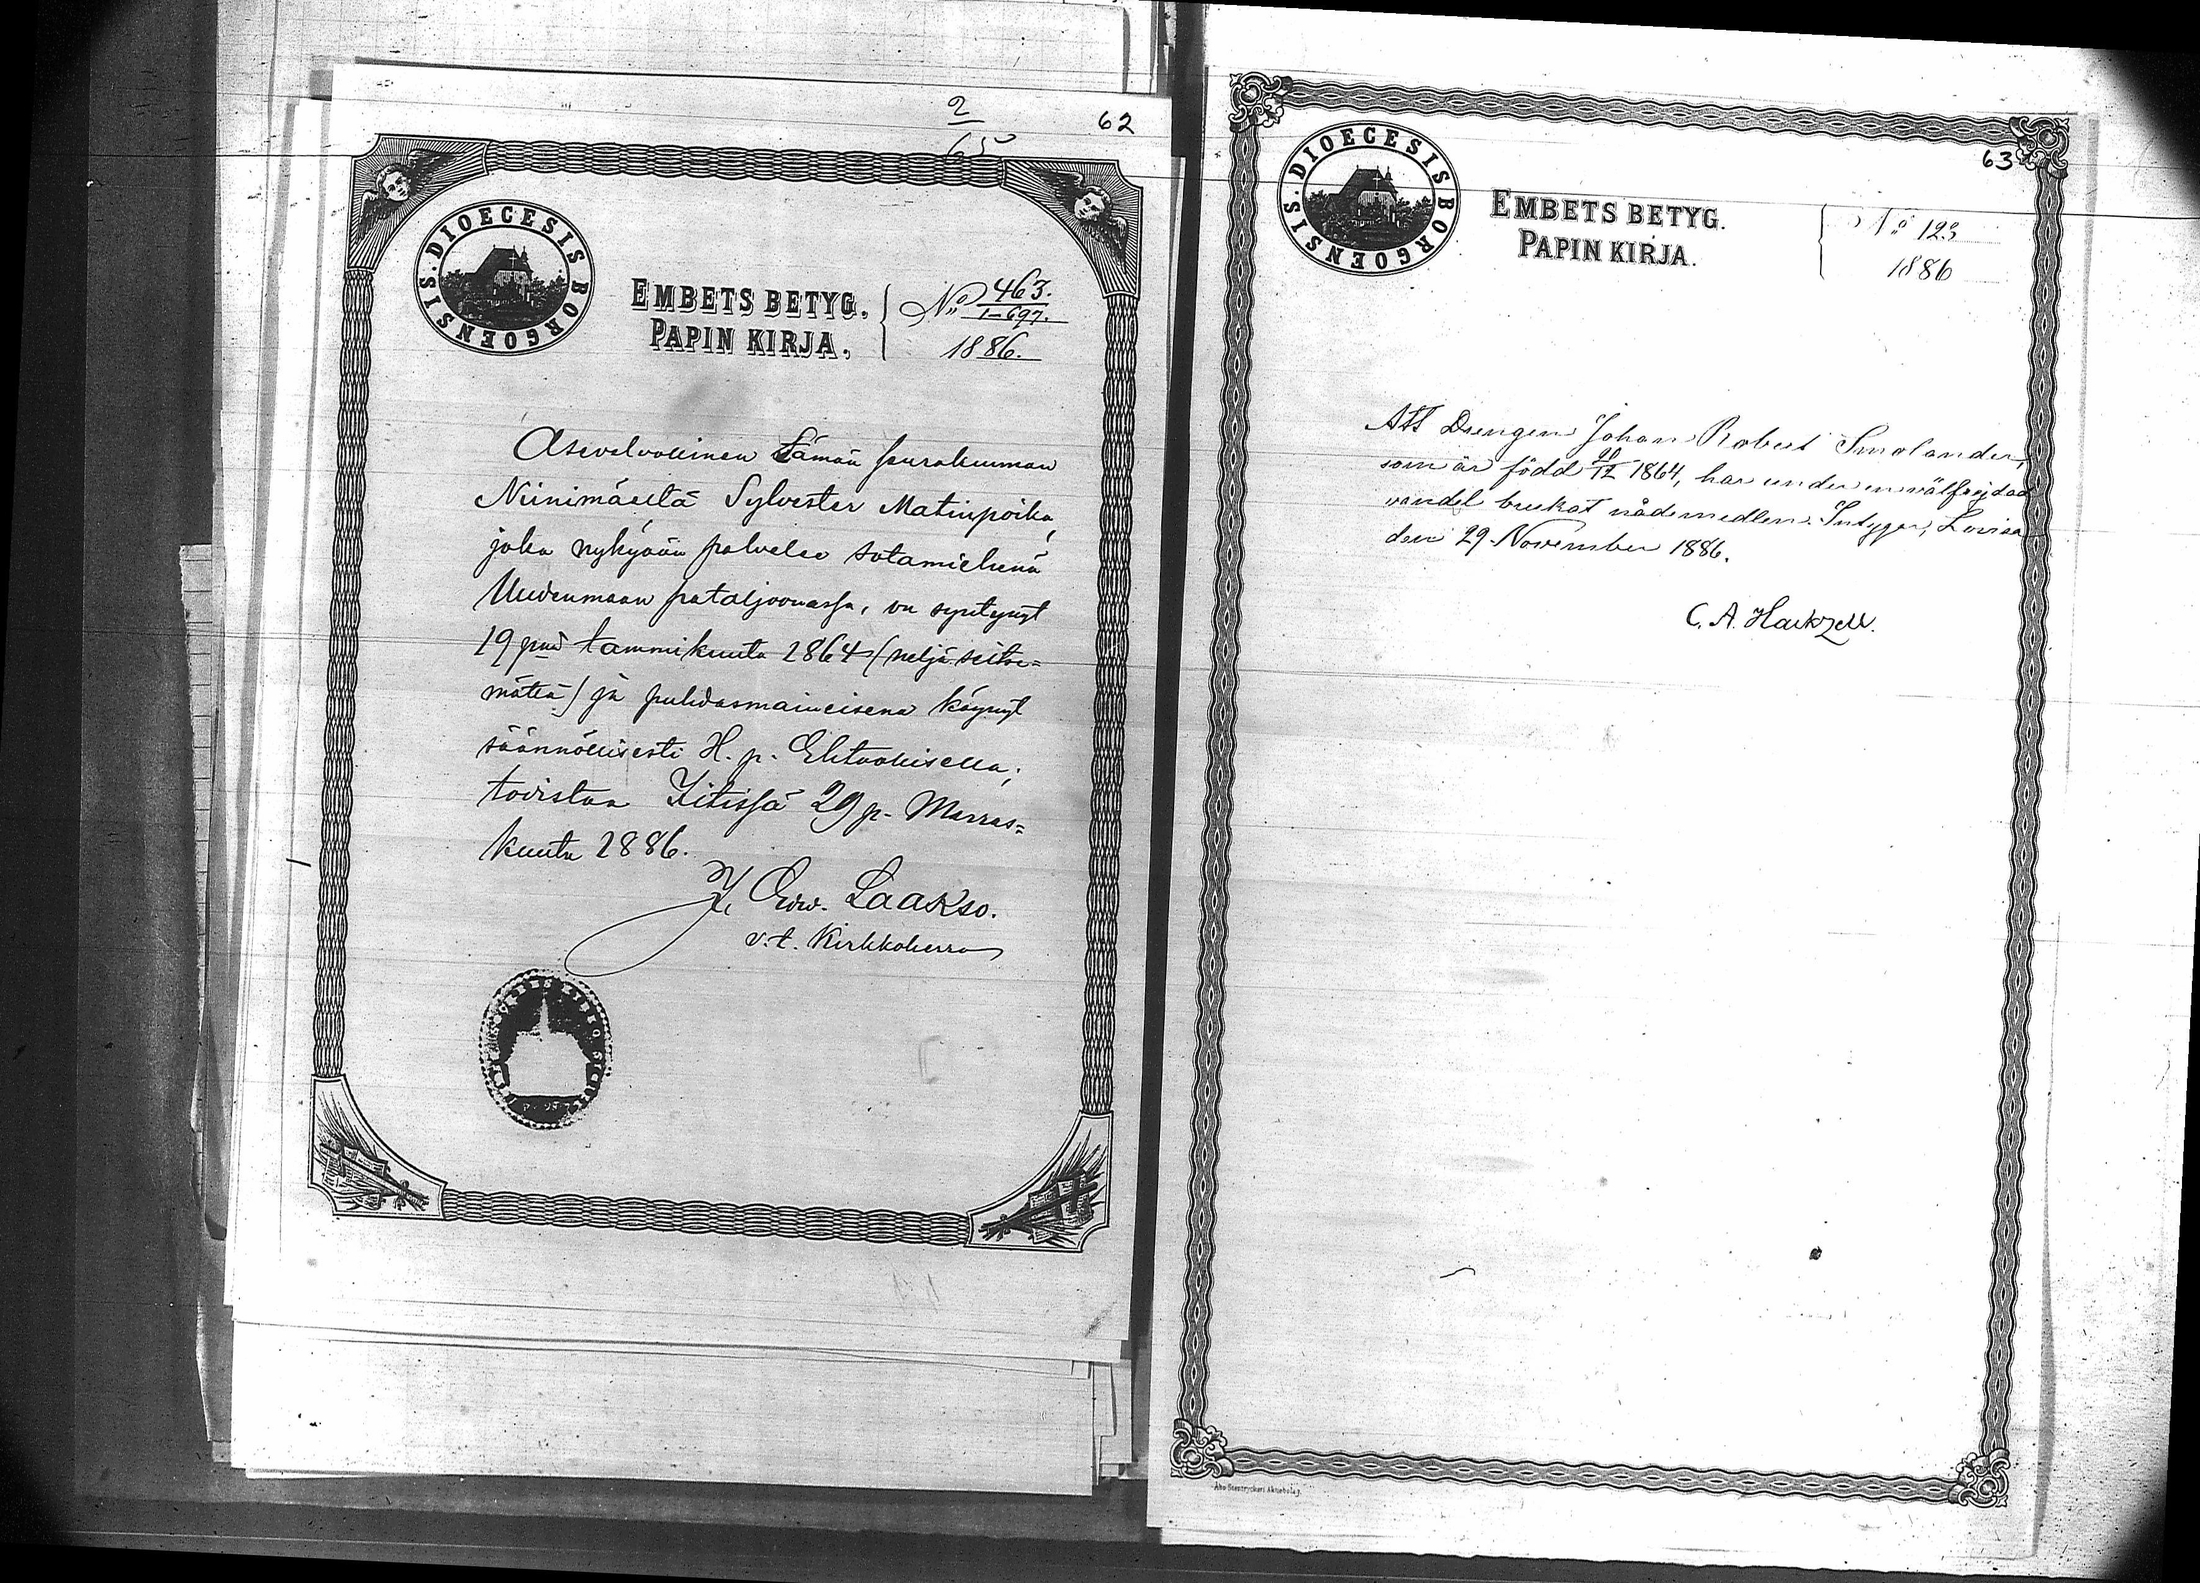 2
65
62
DIOECESIS BORGOENSIS.
EMBETS BETYG.
PAPIN KIRJA.
No 463.
1–697.
1886.
Asevelvollinen tämän seurakunnan
Niinimäeltä Sylvester Matinpoika,
joka nykyään palvelee sotamiehenä
Uudenmaan pataljoonassa, on syntynyt
19 pnä tammikuuta 1864 (neljä seitse=
mättä) ja puhdasmaineisena käynyt
säännöllisesti H. p. Ehtoollisella;
todistaa Iitissä 29 p. Marras=
kuuta 1886.
Edw. Laakso.
v.t. Kirkkoherra
63
DIOECESIS BORGOENSIS.
EMBETS BETYG.
PAPIN KIRJA.
No 123
1886
Att Drengen Johan Robert Smolander,
som är född 20/12 1864, har under en välfrejdad
vandel brukat nådemedlen. Intygar, Lovisa
den 29 November 1886.
C. A. Harkzell.
Åbo Stentryckeri Aktiebolag.